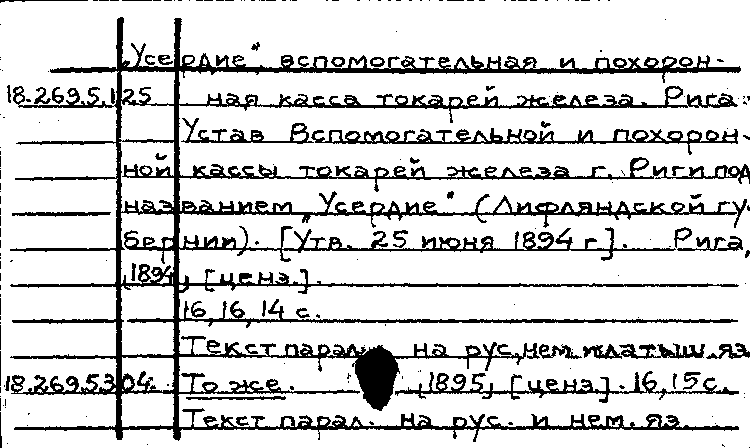 „Усердие“, вспомогательная и похорон-
18.269.5.125 ная касса токарей железа. Рига.
Устав Вспомогательной и похорон-
ной кассы токарей железа г. Риги под
названием „Усердие“ (Лифляндской гу-
бернии). [Утв. 25 июня 1894 г]. Рига,
,1894, [ценз.].
16, 16, 14 с.
Текст парал. на рус, нем и латыш. яз
18.269.5.304. То же. ,1895, [ценз.]. 16, 15 с.
Текст парал. на рус. и нем. яз.